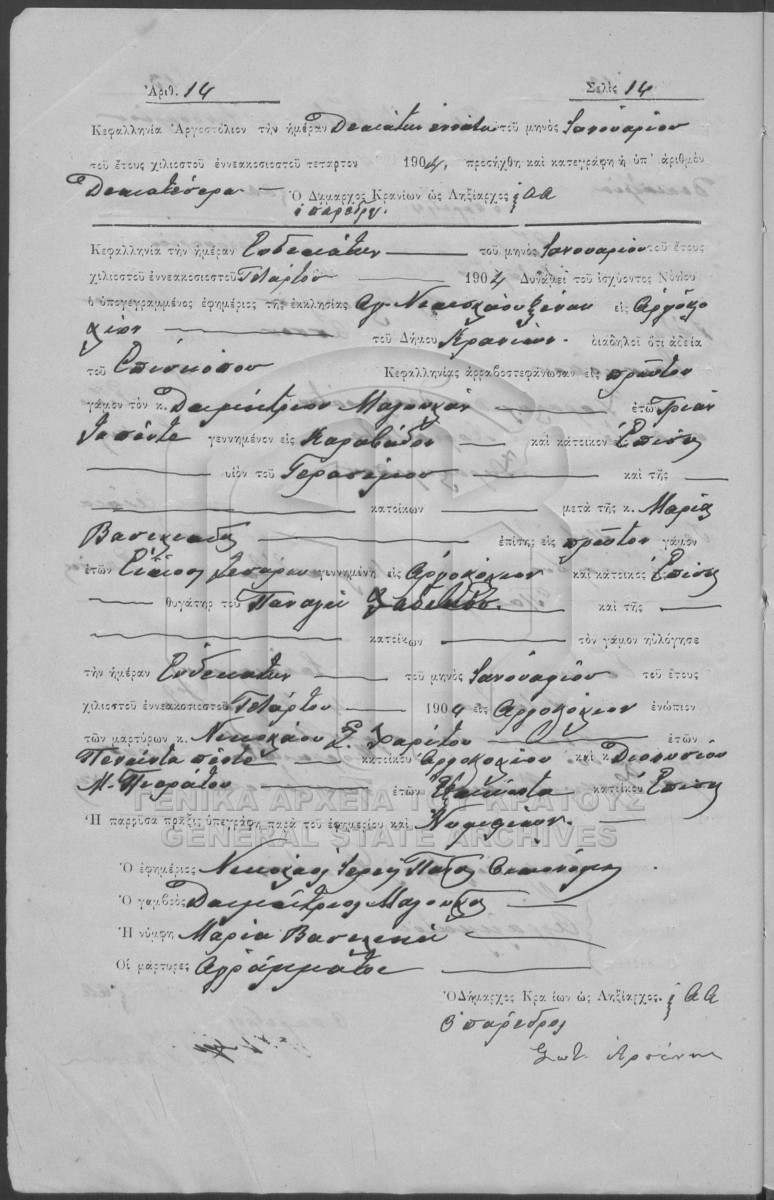 Ἀριθ. 14 Σελὶς 14
Κεφαλληνία Ἀργοστόλιον τὴν ἡμέραν Δεκάτην ἐννάτην τοῦ μηνὸς Ἰανουαρίου
τοῦ ἔτους χιλιοστοῦ ἐννεακοσιοστοῦ τετάρτου 1904, προσήχθη καὶ κατεγράφη ἡ ὑπ' ἀριθμὸν
Δεκατέσσερα — Ὁ Δήμαρχος Κρανίων ὡς Ληξίαρχος
ὁ πάρεδρος
Κεφαλληνία τὴν ἡμέραν Ἑνδεκάτην τοῦ μηνὸς Ἰανουαρίου τοῦ ἔτους
χιλιοστοῦ ἐννεακοσιοστοῦ Τετάρτου 1904 Δυνάμει τοῦ ἰσχύοντος Νόμου
ὁ ὑπογεγραμμένος ἐφημέριος τῆς ἐκκλησίας Αγ. Νικολάου εἰς Αργοστό
λιον τοῦ Δήμου Κρανίων. διαδηλοῖ ὅτι ἀδείᾳ
τοῦ Ἐπισκόπου Κεφαλληνίας ἀρραβοστεφάνωσαν εἰς πρῶτον
γάμον τὸν κ. Δημήτριον ἐτῶν Τριάν
τα πέντε γεννημένον εἰς Καραβάδον καὶ κάτοικον Ἐπίσης
υἱὸν τοῦ Γερασίμου καὶ τῆς
κατοίκων μετὰ τῆς κ. Μαρία
ἐπίσης εἰς πρῶτον γάμον
ἐτῶν Εἴκοσι γεννημένη εἰς Αργοστόλιον καὶ κάτοικος Ἐπίσης
θυγάτηρ τοῦ Παναγῆ καὶ τῆς
κατοίκων τὸν γάμον ηὐλόγησε
τὴν ἡμέραν Ἑνδεκάτην τοῦ μηνὸς Ἰανουαρίου τοῦ ἔτους
χιλιοστοῦ ἐννεακοσιοστοῦ Τετάρτου 1904 εἰς Αργοστόλιον ἐνώπιον
τῶν μαρτύρων κ. Νικολάου Σ. Χαρίτου ἐτῶν
Πενῆντα πέντε κατοίκου Αργοστολίου καὶ κ Διονυσίου
Μ. ἐτῶν κατοίκου Ἐπίσης
Ἡ παροῦσα πρᾶξις ὑπεγράφη παρὰ τοῦ ἐφημερίου καὶ Νυμφίων.
ΓΕΝΙΚΑ ΑΡΧΕΙΑ ΤΟΥ ΚΡΑΤΟΥΣ
GENERAL STATE ARCHIVES
Ὁ ἐφημέριος Νικόλαος Ἱερεὺς Παπᾶ Οικονόμου
Ὁ γαμβρὸς Δημήτριος
Ἡ νύμφη Μαρία
Οἱ μάρτυρες Αγράμματοι
Ὁ Δήμαρχος Κρανίων ὡς Ληξίαρχος.
Ὁ πάρεδρος